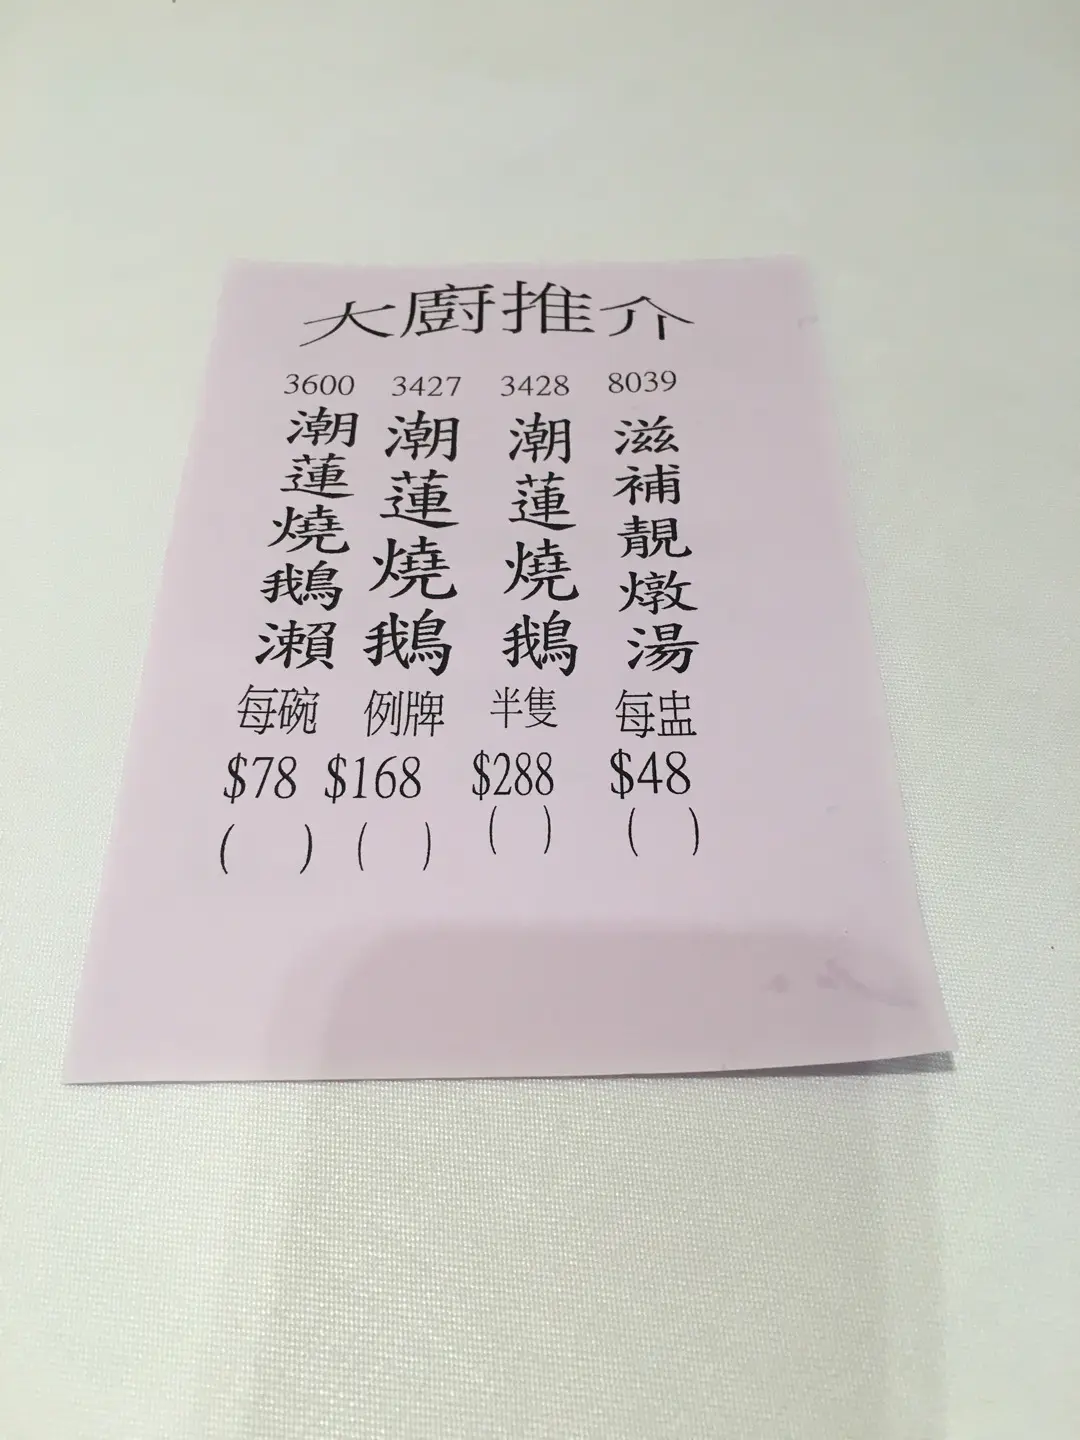 大廚推介
8039
滋補靚燉湯
每盅
$48
( )
3428
潮蓮燒鵝
半隻
$288
( )
3427
潮蓮燒鵝
例牌
$168
( )
3600
潮蓮燒鵝瀨
每碗
$78
( )